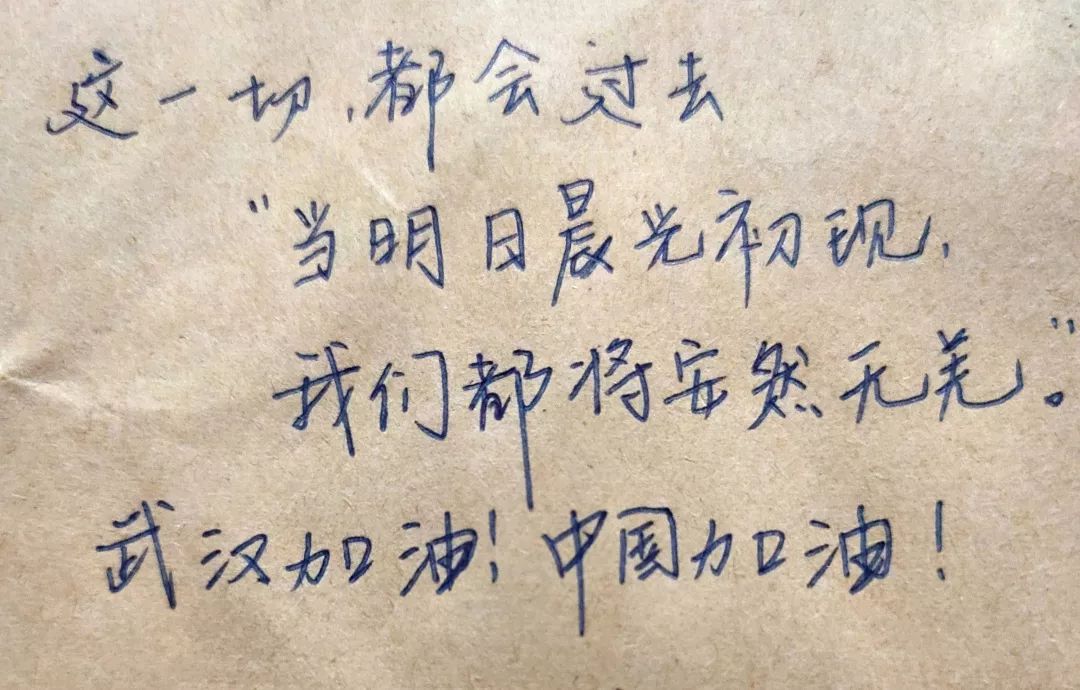 这一切,都会过去
"当明日晨光初现,
我们都将安然无羌。"
武汉加油!中国加油!